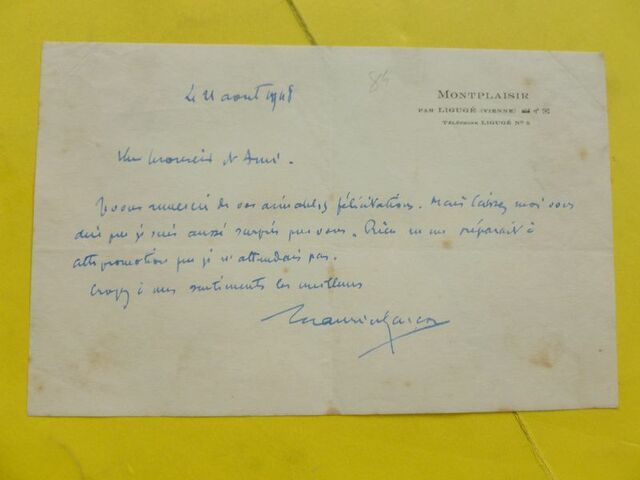 84
MONTPLAISIR
PAR LIGUGÉ (VIENNE)
TÉLÉPHONE LIGUGÉ Nº 2
Le 21 aout 1948
Monsieur et Ami.
Je vous remercie de vos aimables félicitations. Mais laissez moi vous
dire que je suis aussi surpris que vous. Rien ne me préparait à
cette promotion que je n'attendais pas.
Croyez à mes sentiments les meilleurs
Maurice Garçon